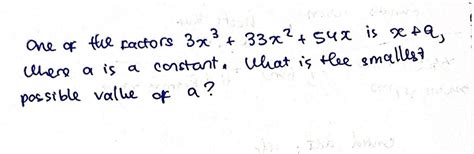 One of the factors 3x³ + 33x² + 54x is x+a,
where a is a constant. What is the smallest
possible value of a?